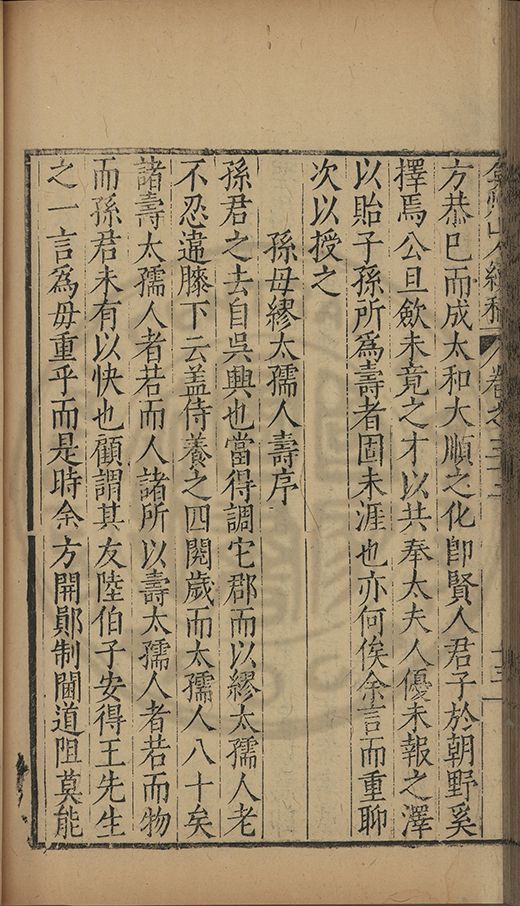 弇州山人續稿 卷之三十三 十三
方恭巳而成太和大順之化卽賢人君子於朝野奚
擇焉公旦歛未竟之才以共奉太夫人優未報之澤
以貽子孫所爲壽者固未涯也亦何俟余言而重聊
次以授之
孫母繆太孺人壽序
孫君之去自吳興也當得調宅郡而以繆太孺人老
不忍違膝下云盖侍養之四閱歲而太孺人八十矣
諸壽太孺人者若而人諸所以壽太孺人者若而物
而孫君未有以快也顧謂其友陸伯子安得王先生
之一言爲毋重乎而是時余方開鄖制閫道阻莫能